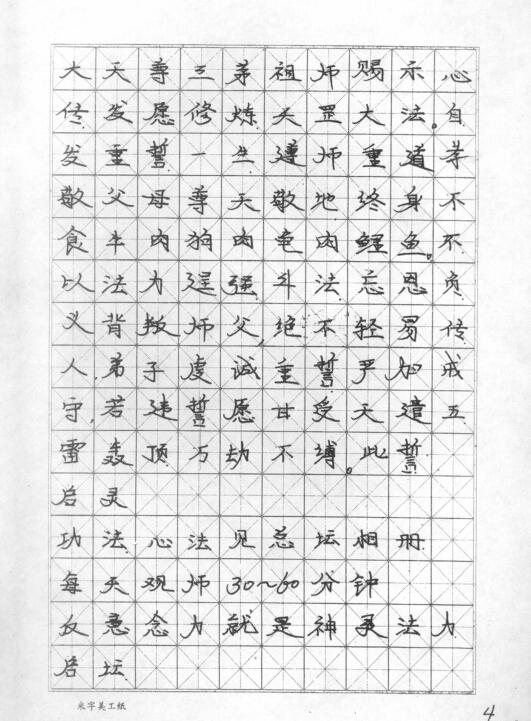 大天尊三茅祖师赐示心
传发愿修炼天罡大法。自
发重誓一生遵师重道孝
敬父母尊天敬地终身不
食牛肉狗肉龟肉鲤鱼。不
以法力逞强斗法忘恩负
义背叛师父,绝不轻易传
人,弟子虔诚重誓严加戒
守,若违誓愿甘受天谴五
雷轰顶万劫不缚。此誓
启灵
功法心法见总坛相册
每天观师30~60分钟
反意念力就是神灵法力
启坛
米字美工纸
4